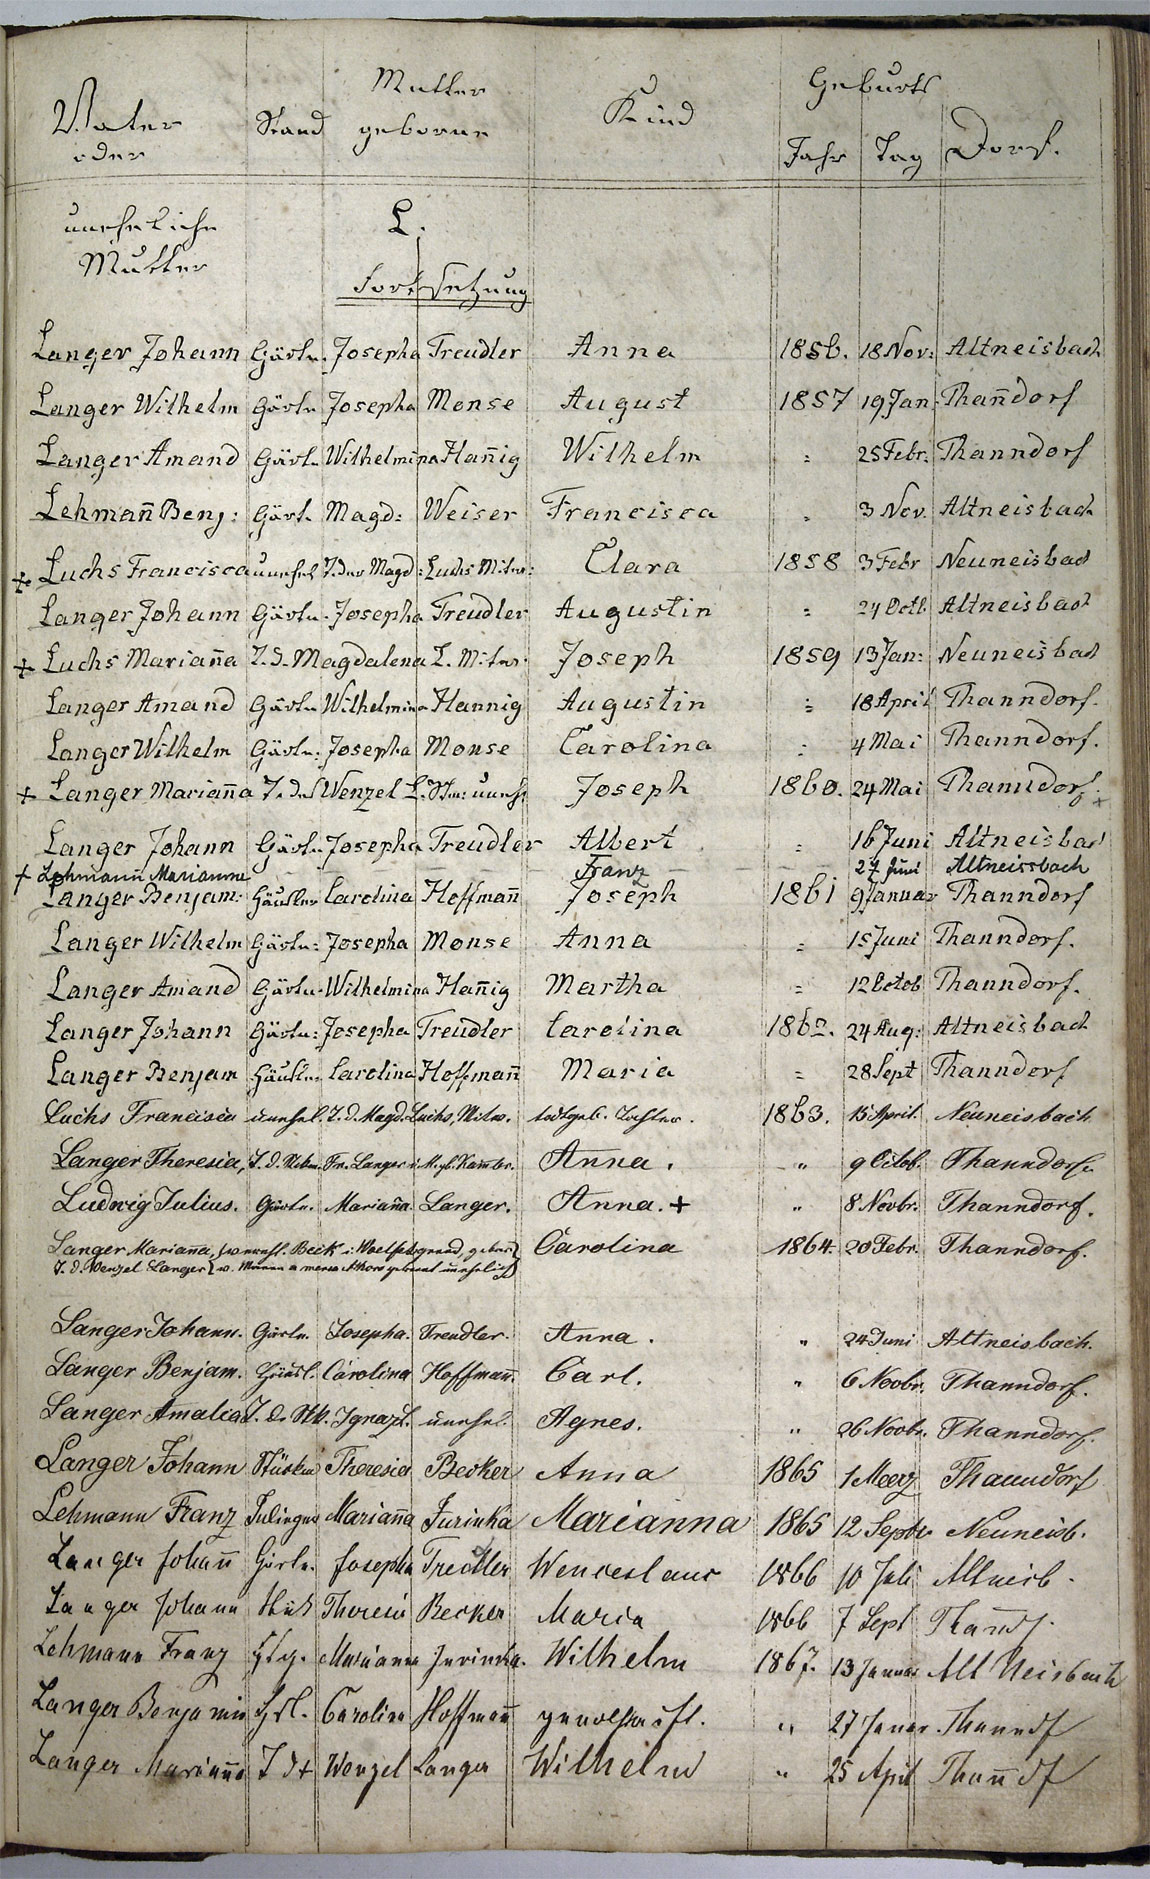 Mutter Geburts
Vater Stand geborne Kind Jahr Tag Dorf.
oder
uneheliche L.
Mutter
Fortsetzung
Langer Johann Gärtn. Josepha Treudler Anna 1856. 18 Nov: Altneisbach
Langer Wilhelm Gärtn Josepha Monse August 1857 19 Jan: Than̄dorf
Langer Amand Gärtn Wilhelmina Han̄ig Wilhelm = 25 Febr. Thanndorf
Lehman̄ Benj: Gärt. Magd: Weiser Francisca = 3 Nov. Altneisbach
+ Luchs Francisca unehel T. der Magd: Luchs Mitw: Clara 1858 3 Febr Neuneisbach
Langer Johann Gärtn. Josepha Treudler Augustin = 24 Octb. Altneisbach
+ Luchs Marian̄a T. d. Magdalena L. Mitw. Joseph 1859 13 Jan: Neuneisbach
Langer Amand Gärtn Wilhelmina Hannig Augustin = 18 April Thanndorf.
Langer Wilhelm Gärtn: Josepha Monse Carolina = 4 Mai Thanndorf.
+ Langer Marian̄a T. d. Wenzel L. uneh Joseph 1860. 24 Mai Thanndorf. +
Langer Johann Gärtn Josepha Treudler Albert = 16 Juni Altneisbach
+ Lehman̄ Marianne Franz 27 Juni Altneissbach
Langer Benjam: Häusler Carolina Hoffman̄ Joseph 1861 9 Januar Thanndorf
Langer Wilhelm Gärtn: Josepha Monse Anna = 15 Juni Thanndorf.
Langer Amand Gärtn. Wilhelmina Han̄ig Martha = 12 Octob Thanndorf.
Langer Johann Gärtn: Josepha Treudler Carolina 1862. 24 Aug: Altneisbach
Langer Benjam Häusl. Carolina Hoffman̄ Maria = 28 Sept Thanndorf
Luchs Francisca unehel. T. d. Magd. Luchs, Mitw. todtgeb. Tochter. 1863. 15 April. Neuneisbach
Langer Theresia, T. d. Fr. Langer Anna. " 9 Octob. Thanndorf.
Ludwig Julius. Gärtn. Marian̄a Langer. Anna. + " 8 Novbr. Thanndorf.
Langer Marian̄a, Beck i. Woelfelsgrund, Carolina 1864. 20 Febr. Thanndorf.
T. d. Wenzel Langer unehelich
Langer Johann. Gärtn. Josepha. Treudler. Anna. " 24 Juni Altneisbach.
Langer Benjam. Häusl. Carolina Hoffman̄. Carl. " 6 Novbr. Thanndorf.
Langer Amalia T. d. Ignaz L. unehel. Agnes. " 26 Novbr. Thanndorf.
Langer Johann Theresia Becker Anna 1865 1 Maerz Thanndorf
Lehmann Franz Marian̄a Jurinka Marianna 1865 12 Septbr Neuneisb.
Langer Johan̄ Gärtn. Josepha Tredtler Wenceslaus 1866 10 Juli Altneisb.
Langer Johann Theresia Becker Maria 1866 7 Sept Than̄df.
Lehmann Franz Marianna Jurincka. Wilhelm 1867. 13 Januar Alt Neisbach
Langer Benjamin Hsl. Carolina Hoffman̄ " 27 Januar. Thanndf
Langer Marian̄a T d+ Wenzel Langer Wilhelm " 25 April Than̄df